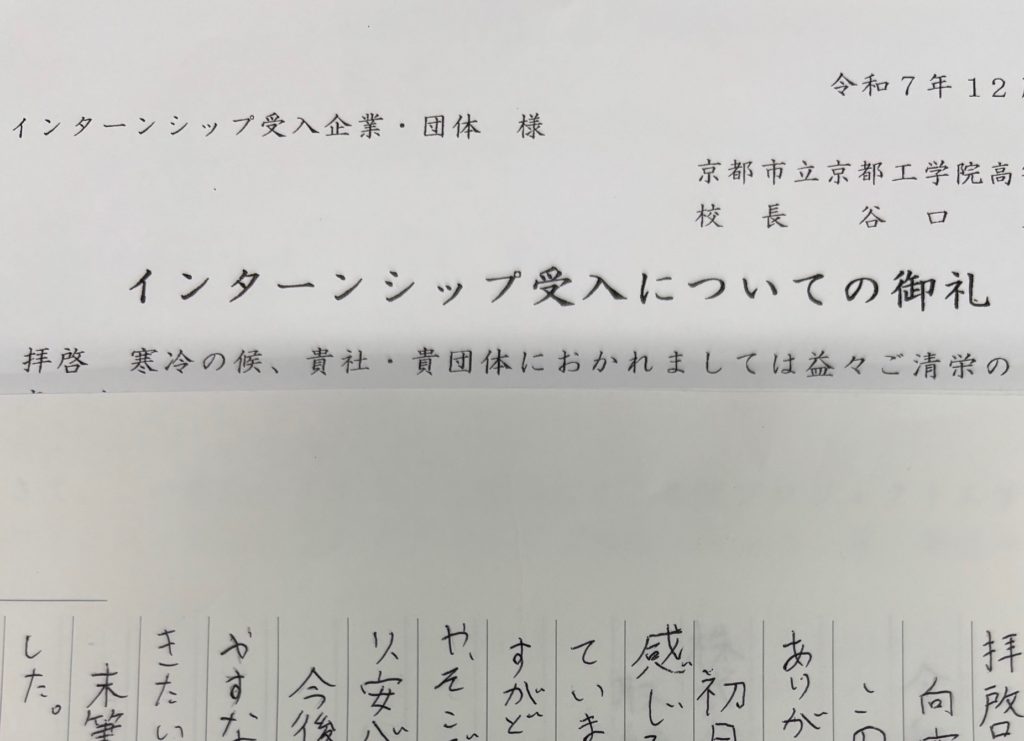 令和７年１２
インターンシップ受入企業・団体　様
京都市立京都工学院高
校　長　　谷　口
インターンシップ受入についての御礼
拝啓　寒冷の候、貴社・貴団体におかれましては益々ご清栄の
拝啓
向
この
ありが
初日
感じ
ていま
すがど
や、そこ
り、安
今後
やすな
きたい
末筆
した。